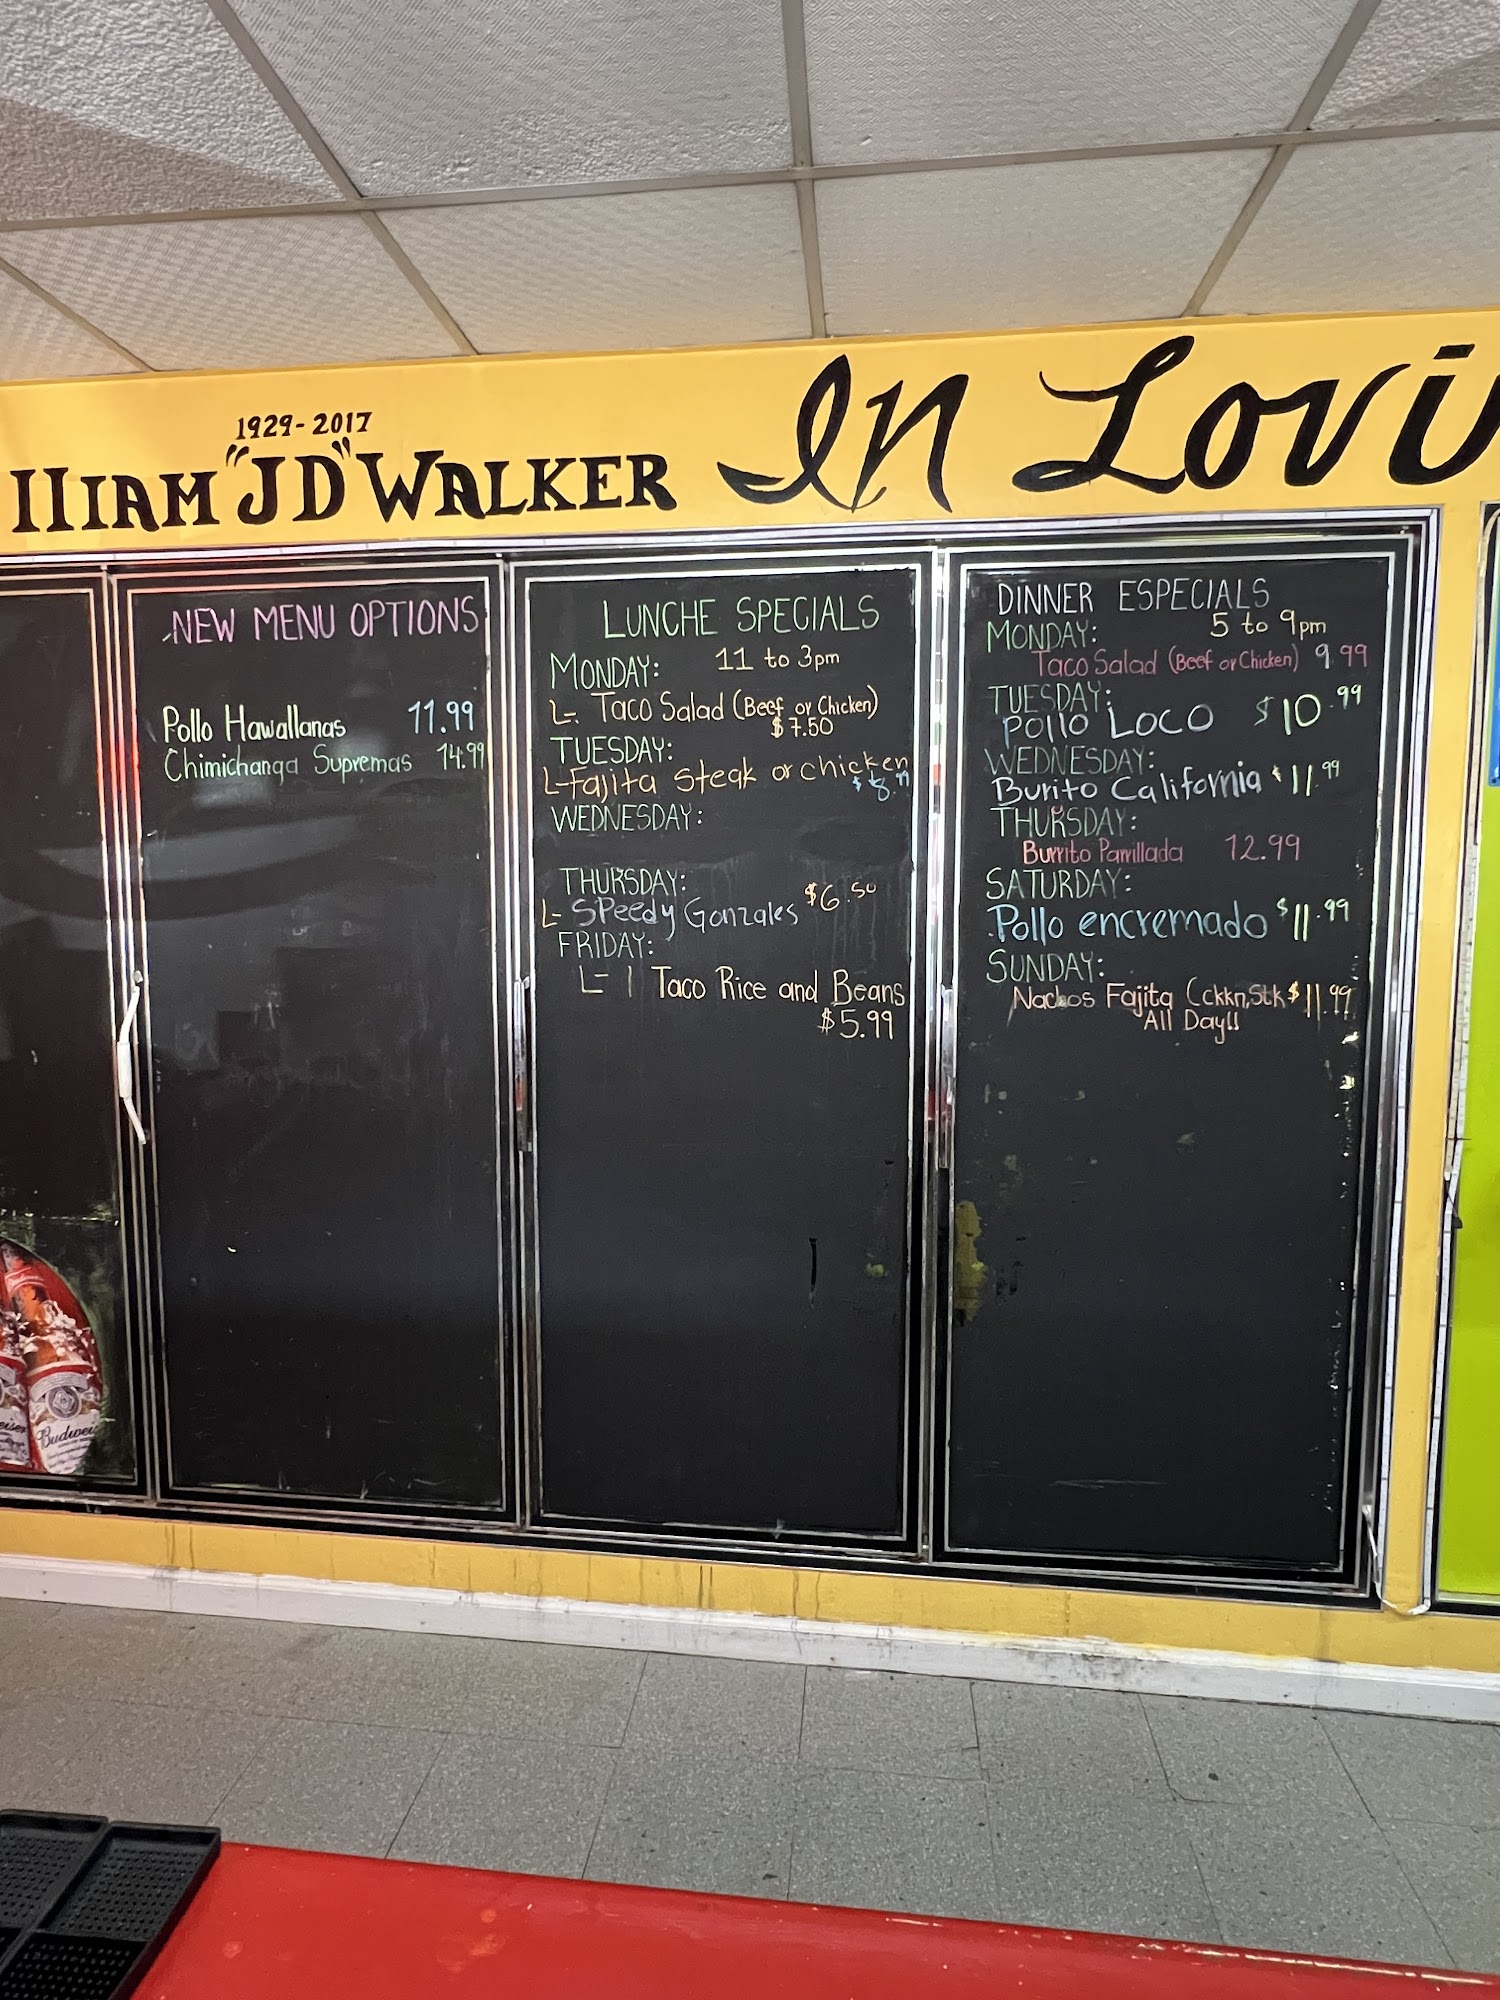 1929-2017
lliam "JD" Walker In Lovi
NEW MENU OPTIONS
Pollo Hawallanas 11.99
Chimichanga Supremas 14.99
LUNCHE SPECIALS
MONDAY: 11 to 3pm
L- Taco Salad (Beef or Chicken)
$7.50
TUESDAY:
L-Fajita Steak or chicken
$8.99
WEDNESDAY:
THURSDAY:
L- SPeedy Gonzales $6.50
FRIDAY:
L- 1 Taco Rice and Beans
$5.99
DINNER ESPECIALS
MONDAY: 5 to 9pm
Taco Salad (Beef or Chicken) 9.99
TUESDAY:
Pollo Loco $10.99
WEDNESDAY:
Burito California $11.99
THURSDAY:
Burrito Parrillada 12.99
SATURDAY:
Pollo encremado $11.99
SUNDAY:
Nachos Fajita (ckkn,Stk $11.99
All Day!!
Budwei